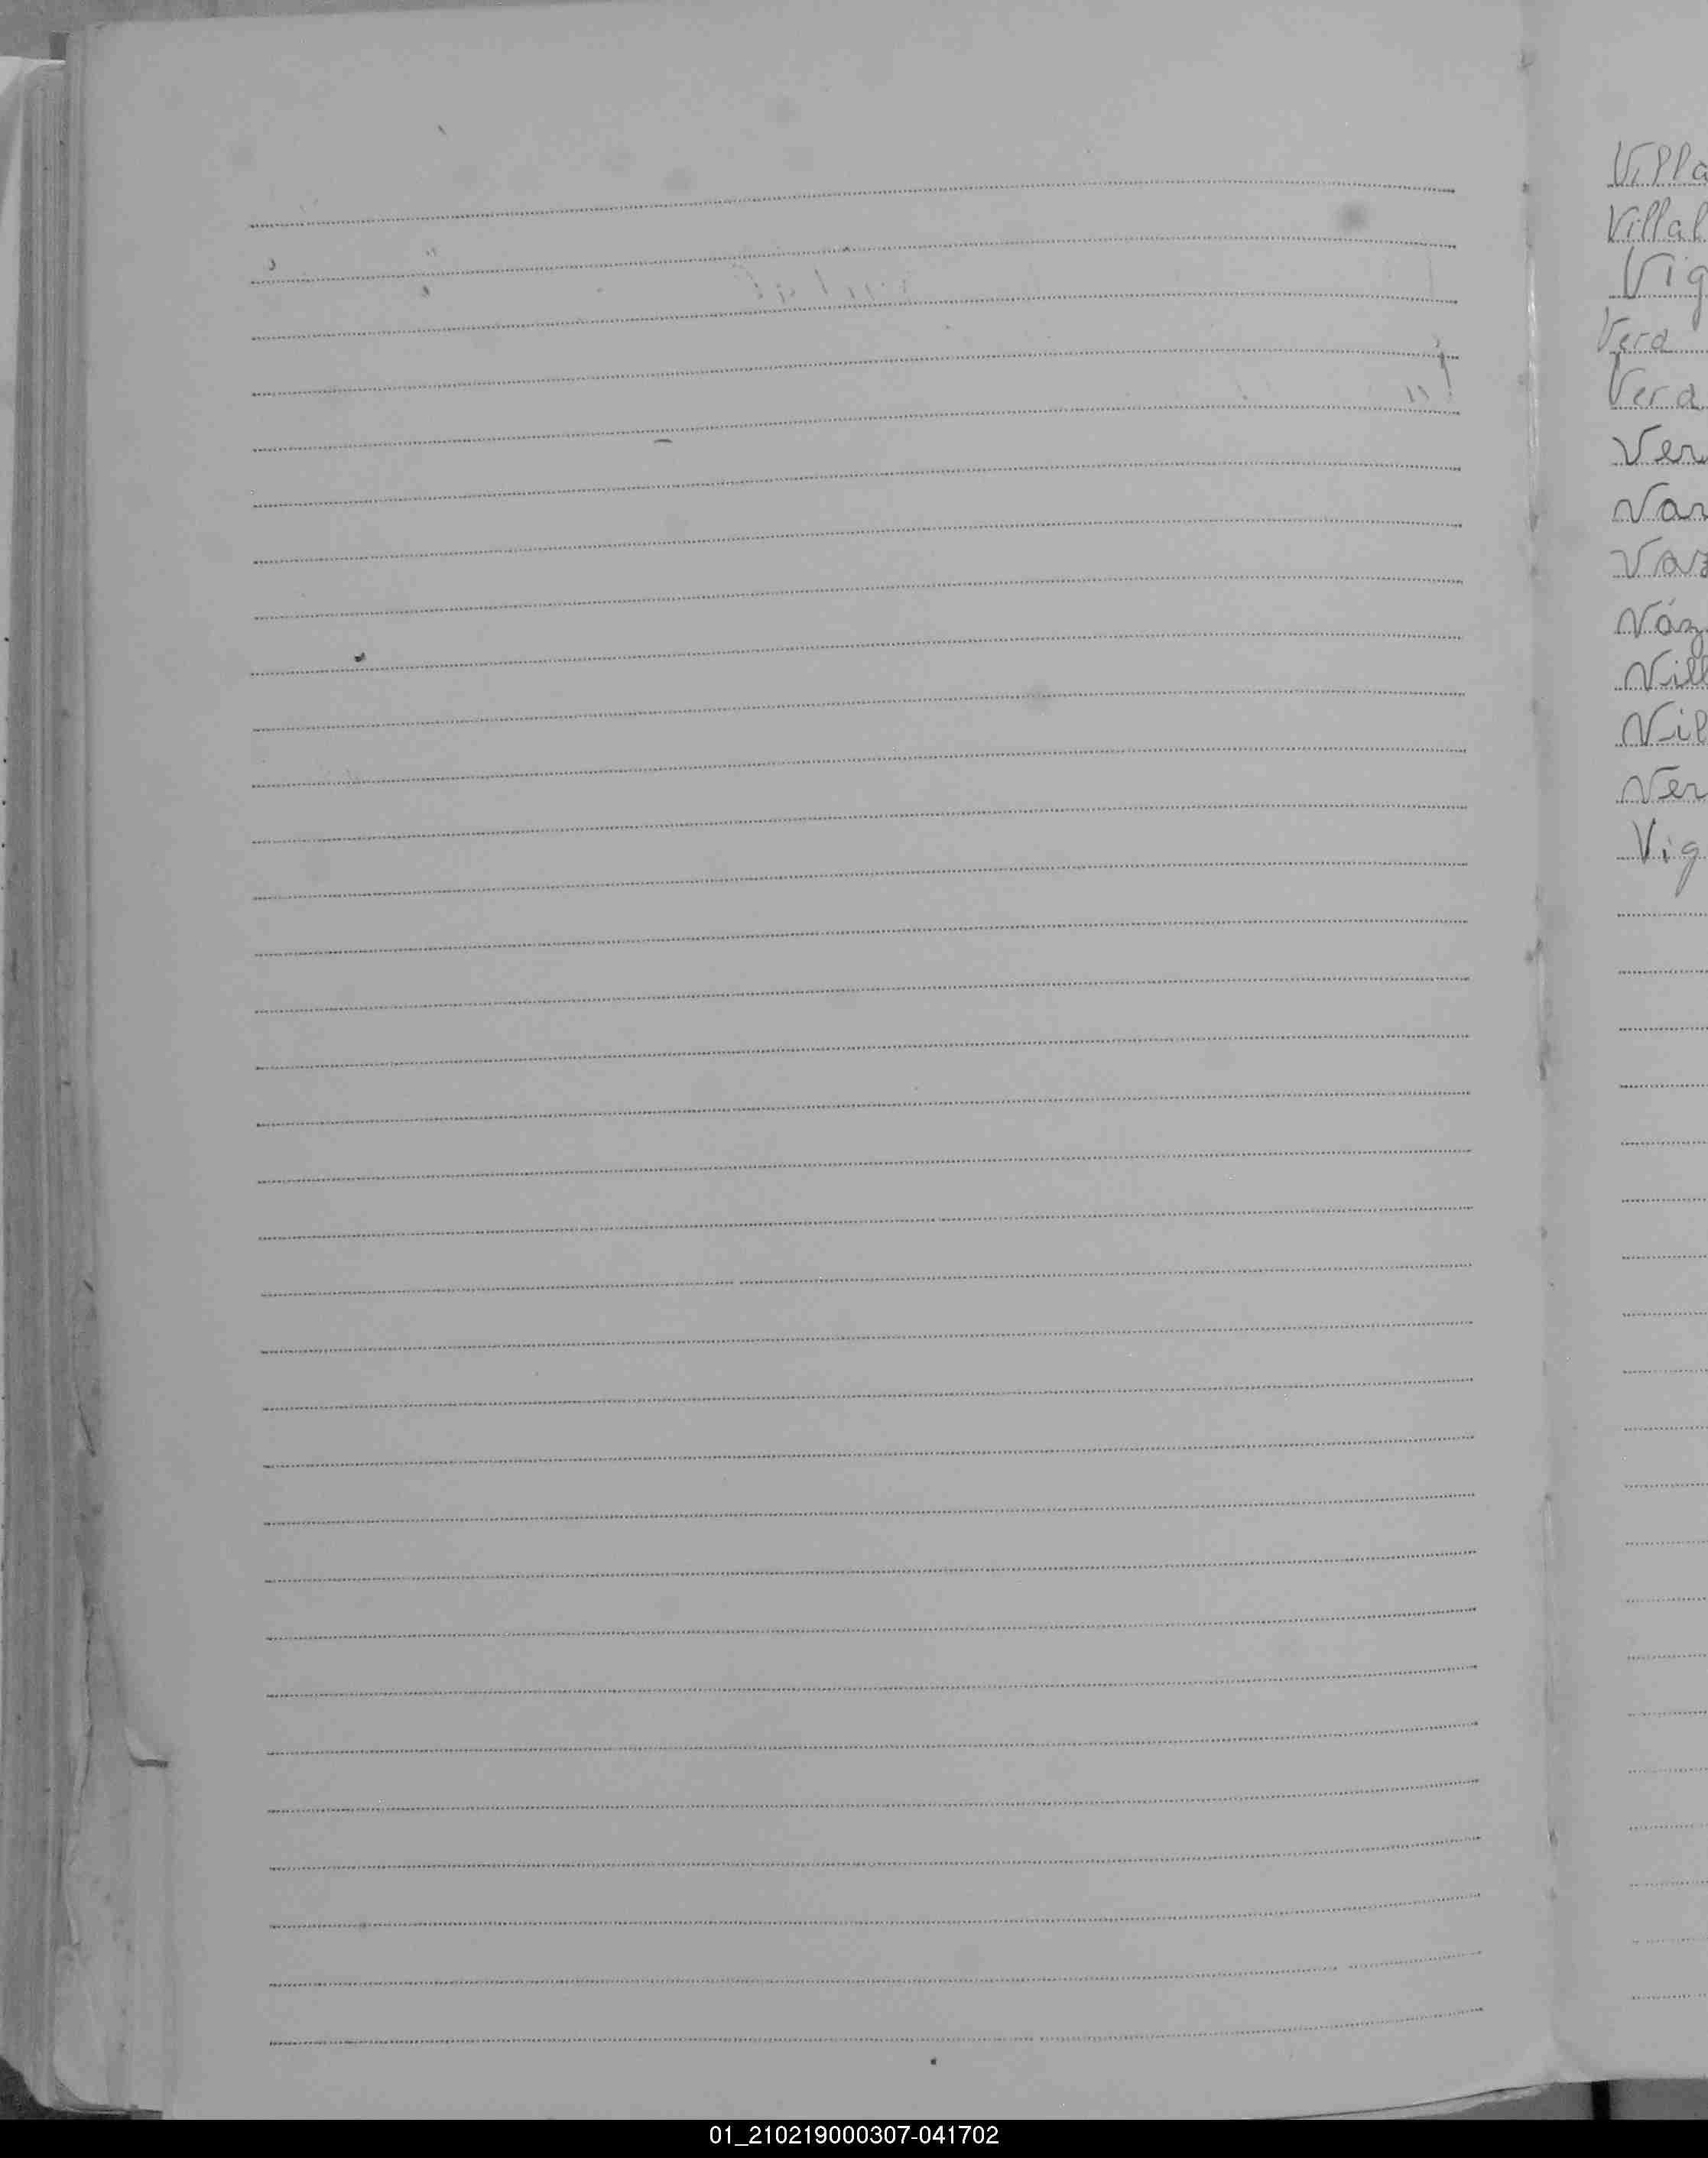 Villa
Villal
Vig
Verd
Verd
Ver
Var
Vaz
Váz
Vill
Vil
Ver
Vig
01_210219000307-041702